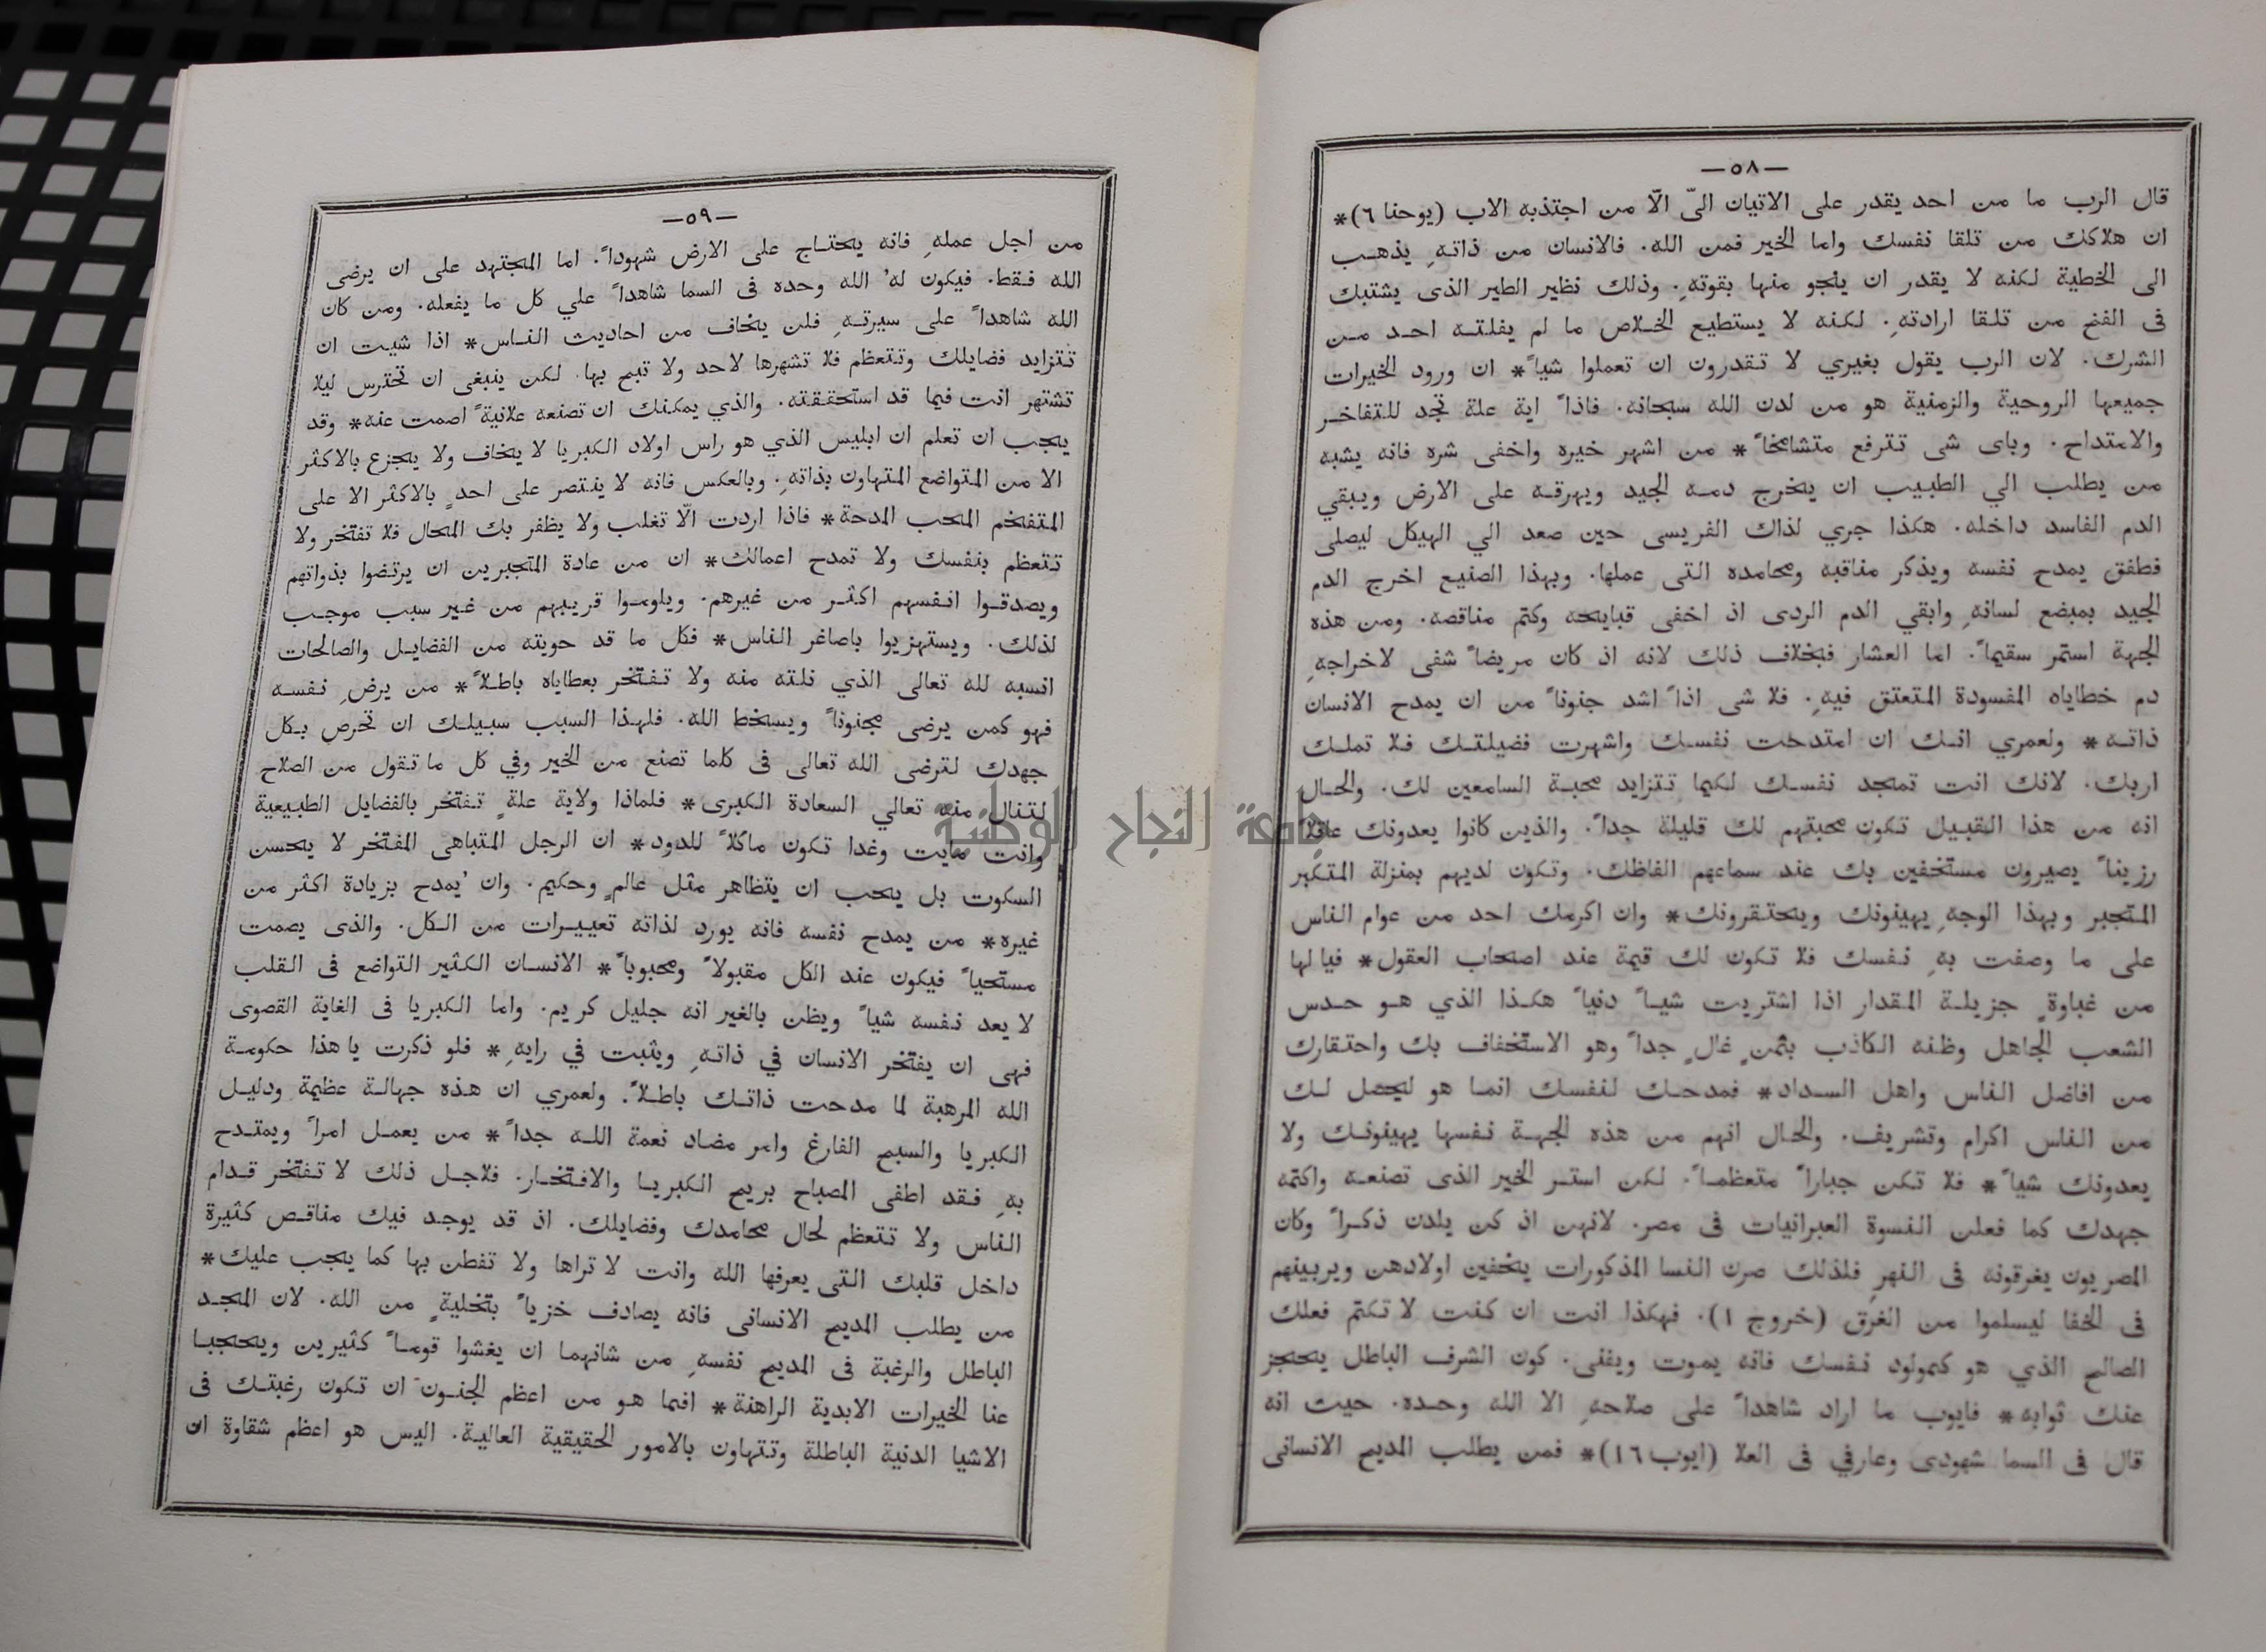 —٥٨—
قال الرب ما من احد يقدر على الاتيان الىّ الّا من اجتذبه الاب (يوحنا ٦)*
ان هلاكك من تلقا نفسك واما الخير فمن الله. فالانسان من ذاتهِ يذهب
الى الخطية لكنه لا يقدر ان ينجو منها بقوتهِ. وذلك نظير الطير الذى يشتبك
فى الفخ من تلقا ارادتهِ. لكنه لا يستطيع الخلاص ما لم يفلته احد من
الشرك. لان الرب يقول بغيري لا تقدرون ان تعملوا شياً* ان ورود الخيرات
جميعها الروحية والزمنية هو من لدن الله سبحانه. فاذاً اية علة تجد للتفاخر
والامتداح. وباى شى تترفع متشامخاً* من اشهر خيره واخفى شره فانه يشبه
من يطلب الي الطبيب ان يخرج دمه الجيد ويهرقه على الارض ويبقي
الدم الفاسد داخله. هكذا جري لذاك الفريسى حين صعد الي الهيكل ليصلى
فطفق يمدح نفسه ويذكر مناقبه ومحامده التى عملها. وبهذا الصنيع اخرج الدم
الجيد بمبضع لسانهِ وابقي الدم الردى اذ اخفى قبايحه وكتم مناقصه. ومن هذه
الجهة استمر سقيماً. اما العشار فبخلاف ذلك لانه اذ كان مريضاً شفى لاخراجهِ
دم خطاياه المفسودة المتعتق فيهِ. فلا شى اذاً اشد جنوناً من ان يمدح الانسان
ذاته* ولعمري انك ان امتدحت نفسك واشهرت فضيلتك فلا تملك
اربك. لانك انت تمجد نفسك لكيما تتزايد محبة السامعين لك. والحال
انه من هذا القبيل تكون محبتهم لك قليلة جداً. والذين كانوا يعدونك عاقلاً
رزيناً يصيرون مستخفين بك عند سماعهم الفاظك. وتكون لديهم بمنزلة المتكبر
المتجبر وبهذا الوجهِ يهينونك ويحتقرونك* وان اكرمك احد من عوام الناس
على ما وصفت بهِ نفسك فلا تكون لك قيمة عند اصحاب العقول* فيا لها
من غباوةٍ جزيلة المقدار اذا اشتريت شياً دنياً هكذا الذي هو حدس
الشعب الجاهل وظنه الكاذب بثمنٍ غالٍ جداً وهو الاستخفاف بك واحتقارك
من افاضل الناس واهل السداد* فمدحك لنفسك انما هو ليحصل لك
من الناس اكرام وتشريف. والحال انهم من هذه الجهة نفسها يهينونك ولا
يعدونك شياً* فلا تكن جباراً متعظماً. لكن استر الخير الذى تصنعه واكتمه
جهدك كما فعلن النسوة العبرانيات فى مصر. لانهن اذ كن يلدن ذكراً وكان
المصريون يغرقونه فى النهر فلذلك صرن النسا المذكورات يخفين اولادهن ويربينهم
فى الخفا ليسلموا من الغرق (خروج ١). فهكذا انت ان كنت لا تكتم فعلك
الصالح الذي هو كمولود نفسك فانه يموت ويفنى. كون الشرف الباطل يحجز
عنك ثوابه* فايوب ما اراد شاهداً على صلاحهِ الا الله وحده. حيث انه
قال فى السما شهودى وعارفي فى العلا (ايوب ١٦)* فمن يطلب المديح الانسانى
—٥٩—
من اجل عملهِ فانه يحتاج على الارض شهوداً. اما المجتهد على ان يرضى
الله فقط. فيكون له الله وحده فى السما شاهداً علي كل ما يفعله. ومن كان
الله شاهداً على سيرتهِ فلن يخاف من احاديث الناس* اذا شيت ان
تتزايد فضايلك وتتعظم فلا تشهرها لاحد ولا تبح بها. لكن ينبغى ان تحترس ليلا
تشتهر انت فيما قد استحققته. والذي يمكنك ان تصنعه علانيةً اصمت عنه* وقد
يجب ان تعلم ان ابليس الذي هو راس اولاد الكبريا لا يخاف ولا يجزع بالاكثر
الا من المتواضع المتهاون بذاتهِ. وبالعكس فانه لا ينتصر على احدٍ بالاكثر الا على
المتفخم المحب المدحة* فاذا اردت الّا تغلب ولا يظفر بك المحال فلا تفتخر ولا
تتعظم بنفسك ولا تمدح اعمالك* ان من عادة المتجبرين ان يرتضوا بذواتهم
ويصدقوا انفسهم اكثر من غيرهم. ويلوموا قريبهم من غير سبب موجب
لذلك. ويستهزيوا باصاغر الناس* فكل ما قد حويته من الفضايل والصالحات
انسبه لله تعالى الذي نلته منه ولا تفتخر بعطاياه باطلاً* من يرضِ نفسه
فهو كمن يرضى مجنوناً ويسخط الله. فلهذا السبب سبيلك ان تحرص بكل
جهدك لترضى الله تعالى فى كلما تصنع من الخير وفي كل ما تقول من الصلاح
لتنال منه تعالي السعادة الكبرى* فلماذا ولاية علةٍ تفتخر بالفضايل الطبيعية
وانت مايت وغدا تكون ماكلاً للدود* ان الرجل المتباهى المفتخر لا يحسن
السكوت بل يحب ان يتظاهر مثل عالمٍ وحكيم. وان يُمدح بزيادة اكثر من
غيره* من يمدح نفسه فانه يورد لذاته تعييرات من الكل. والذى يصمت
مستحياً فيكون عند الكل مقبولاً ومحبوباً* الانسان الكثير التواضع فى القلب
لا يعد نفسه شياً ويظن بالغير انه جليل كريم. واما الكبريا فى الغاية القصوى
فهى ان يفتخر الانسان في ذاتهِ ويثبت في رايهِ* فلو ذكرت يا هذا حكومة
الله المرهبة لما مدحت ذاتك باطلاً. ولعمري ان هذه جهالة عظيمة ودليل
الكبريا والسبح الفارغ وامر مضاد نعمة الله جداً* من يعمل امراً ويمتدح
بهِ فقد اطفى المصباح بريح الكبريا والافتخار. فلاجل ذلك لا تفتخر قدام
الناس ولا تتعظم لحال محامدك وفضايلك. اذ قد يوجد فيك مناقص كثيرة
داخل قلبك التى يعرفها الله وانت لا تراها ولا تفطن بها كما يجب عليك*
من يطلب المديح الانسانى فانه يصادف خزياً بتخليةٍ من الله. لان المجد
الباطل والرغبة فى المديح نفسهِ من شانهما ان يغشوا قوماً كثيرين ويحجبا
عنا الخيرات الابدية الراهنة* افما هو من اعظم الجنون ان تكون رغبتك فى
الاشيا الدنية الباطلة وتتهاون بالامور الحقيقية العالية. اليس هو اعظم شقاوة ان
جامعة النجاح الوطنية